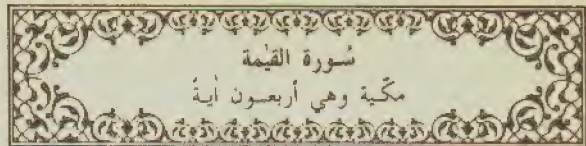 سُورة القيٰمة
مكّية وهي أربعون أيةً